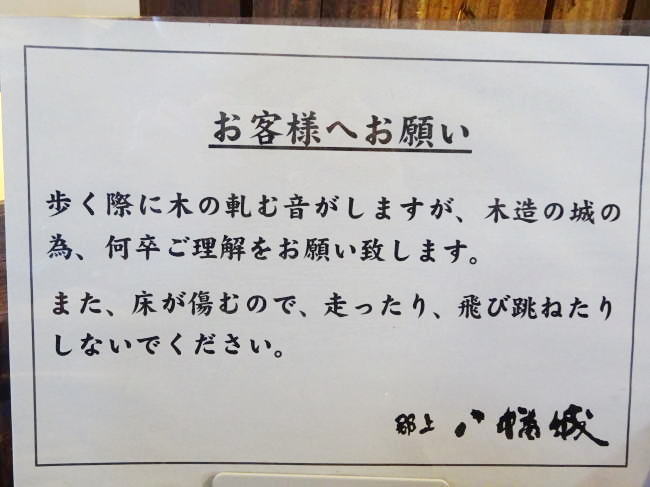 お客様へお願い
歩く際に木の軋む音がしますが、木造の城の
為、何卒ご理解をお願い致します。
また、床が傷むので、走ったり、飛び跳ねたり
しないでください。
郡上八幡城